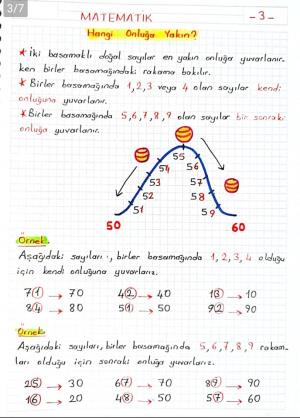 3/7
MATEMATİK
-3-
Hangi Onluğa Yakın?
* İki basamaklı doğal sayılar en yakın onluğa yuvarlanır-
ken birler basamağındaki rakama bakılır.
* Birler basamağında 1,2,3 veya 4 olan sayılar kendi
onluğuna yuvarlanır.
* Birler basamağında 5,6,7,8,9 olan sayılar bir sonraki
onluğa yuvarlanır.
55
54 56
53 57
52 58
51 59
50 60
Örnek
Aşağıdaki sayıları, birler basamağında 1, 2, 3, 4 olduğu
için kendi onluğuna yuvarlarız.
71 → 70 42 → 40 13 → 10
84 → 80 51 → 50 92 → 90
Örnek
Aşağıdaki sayıları, birler basamağında 5, 6, 7, 8, 9 rakam-
ları olduğu için sonraki onluğa yuvarlarız.
25 → 30 67 → 70 89 → 90
16 → 20 48 → 50 57 → 60